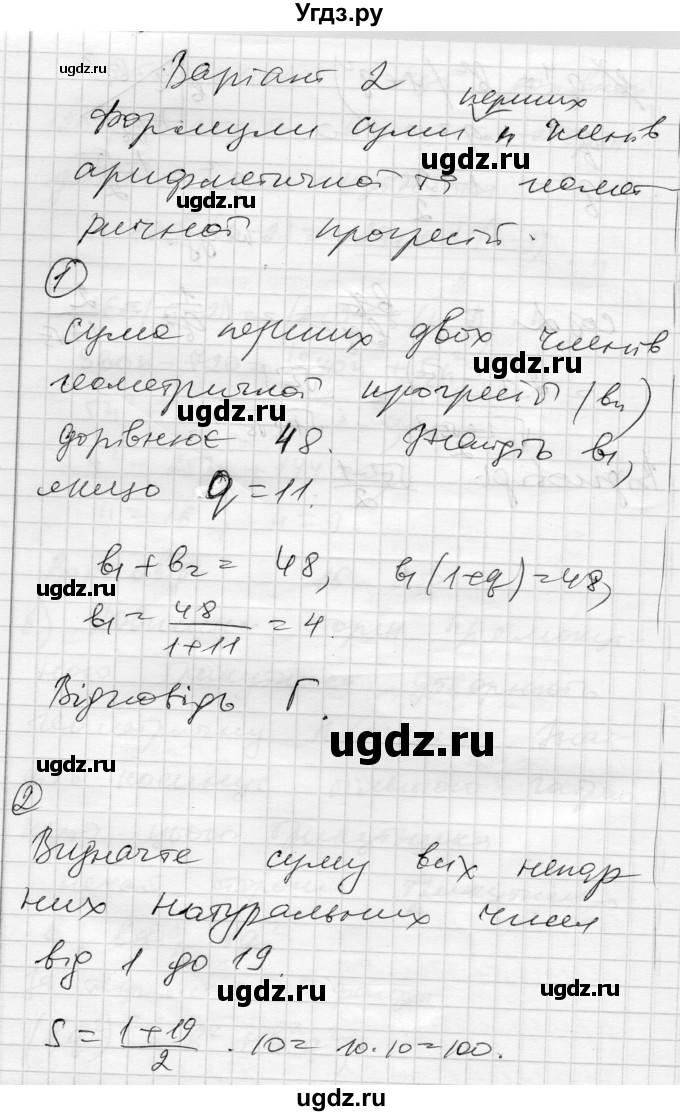 Угдз.ру
ugdz.ru
Варіант 2
перших
Формули суми n членів
ugdz.ru
арифметичної та геомет
ugdz.ru
ричної прогресії.
1
Сума перших двох членів
ugdz.ru
геометричної прогресії (bn)
ugdz.ru
дорівнює 48. Знайдіть b1,
якщо q = 11.
b1 + b2 = 48, b1(1+q) = 48,
ugdz.ru
b1 = 48/(1+11) = 4.
Відповідь Г.
ugdz.ru
ugdz.ru
2
Визначте суму всіх непар
них натуральних чисел
від 1 до 19.
ugdz.ru
ugdz.ru
S = (1+19)/2 · 10 = 10·10 = 100.
ugdz.ru